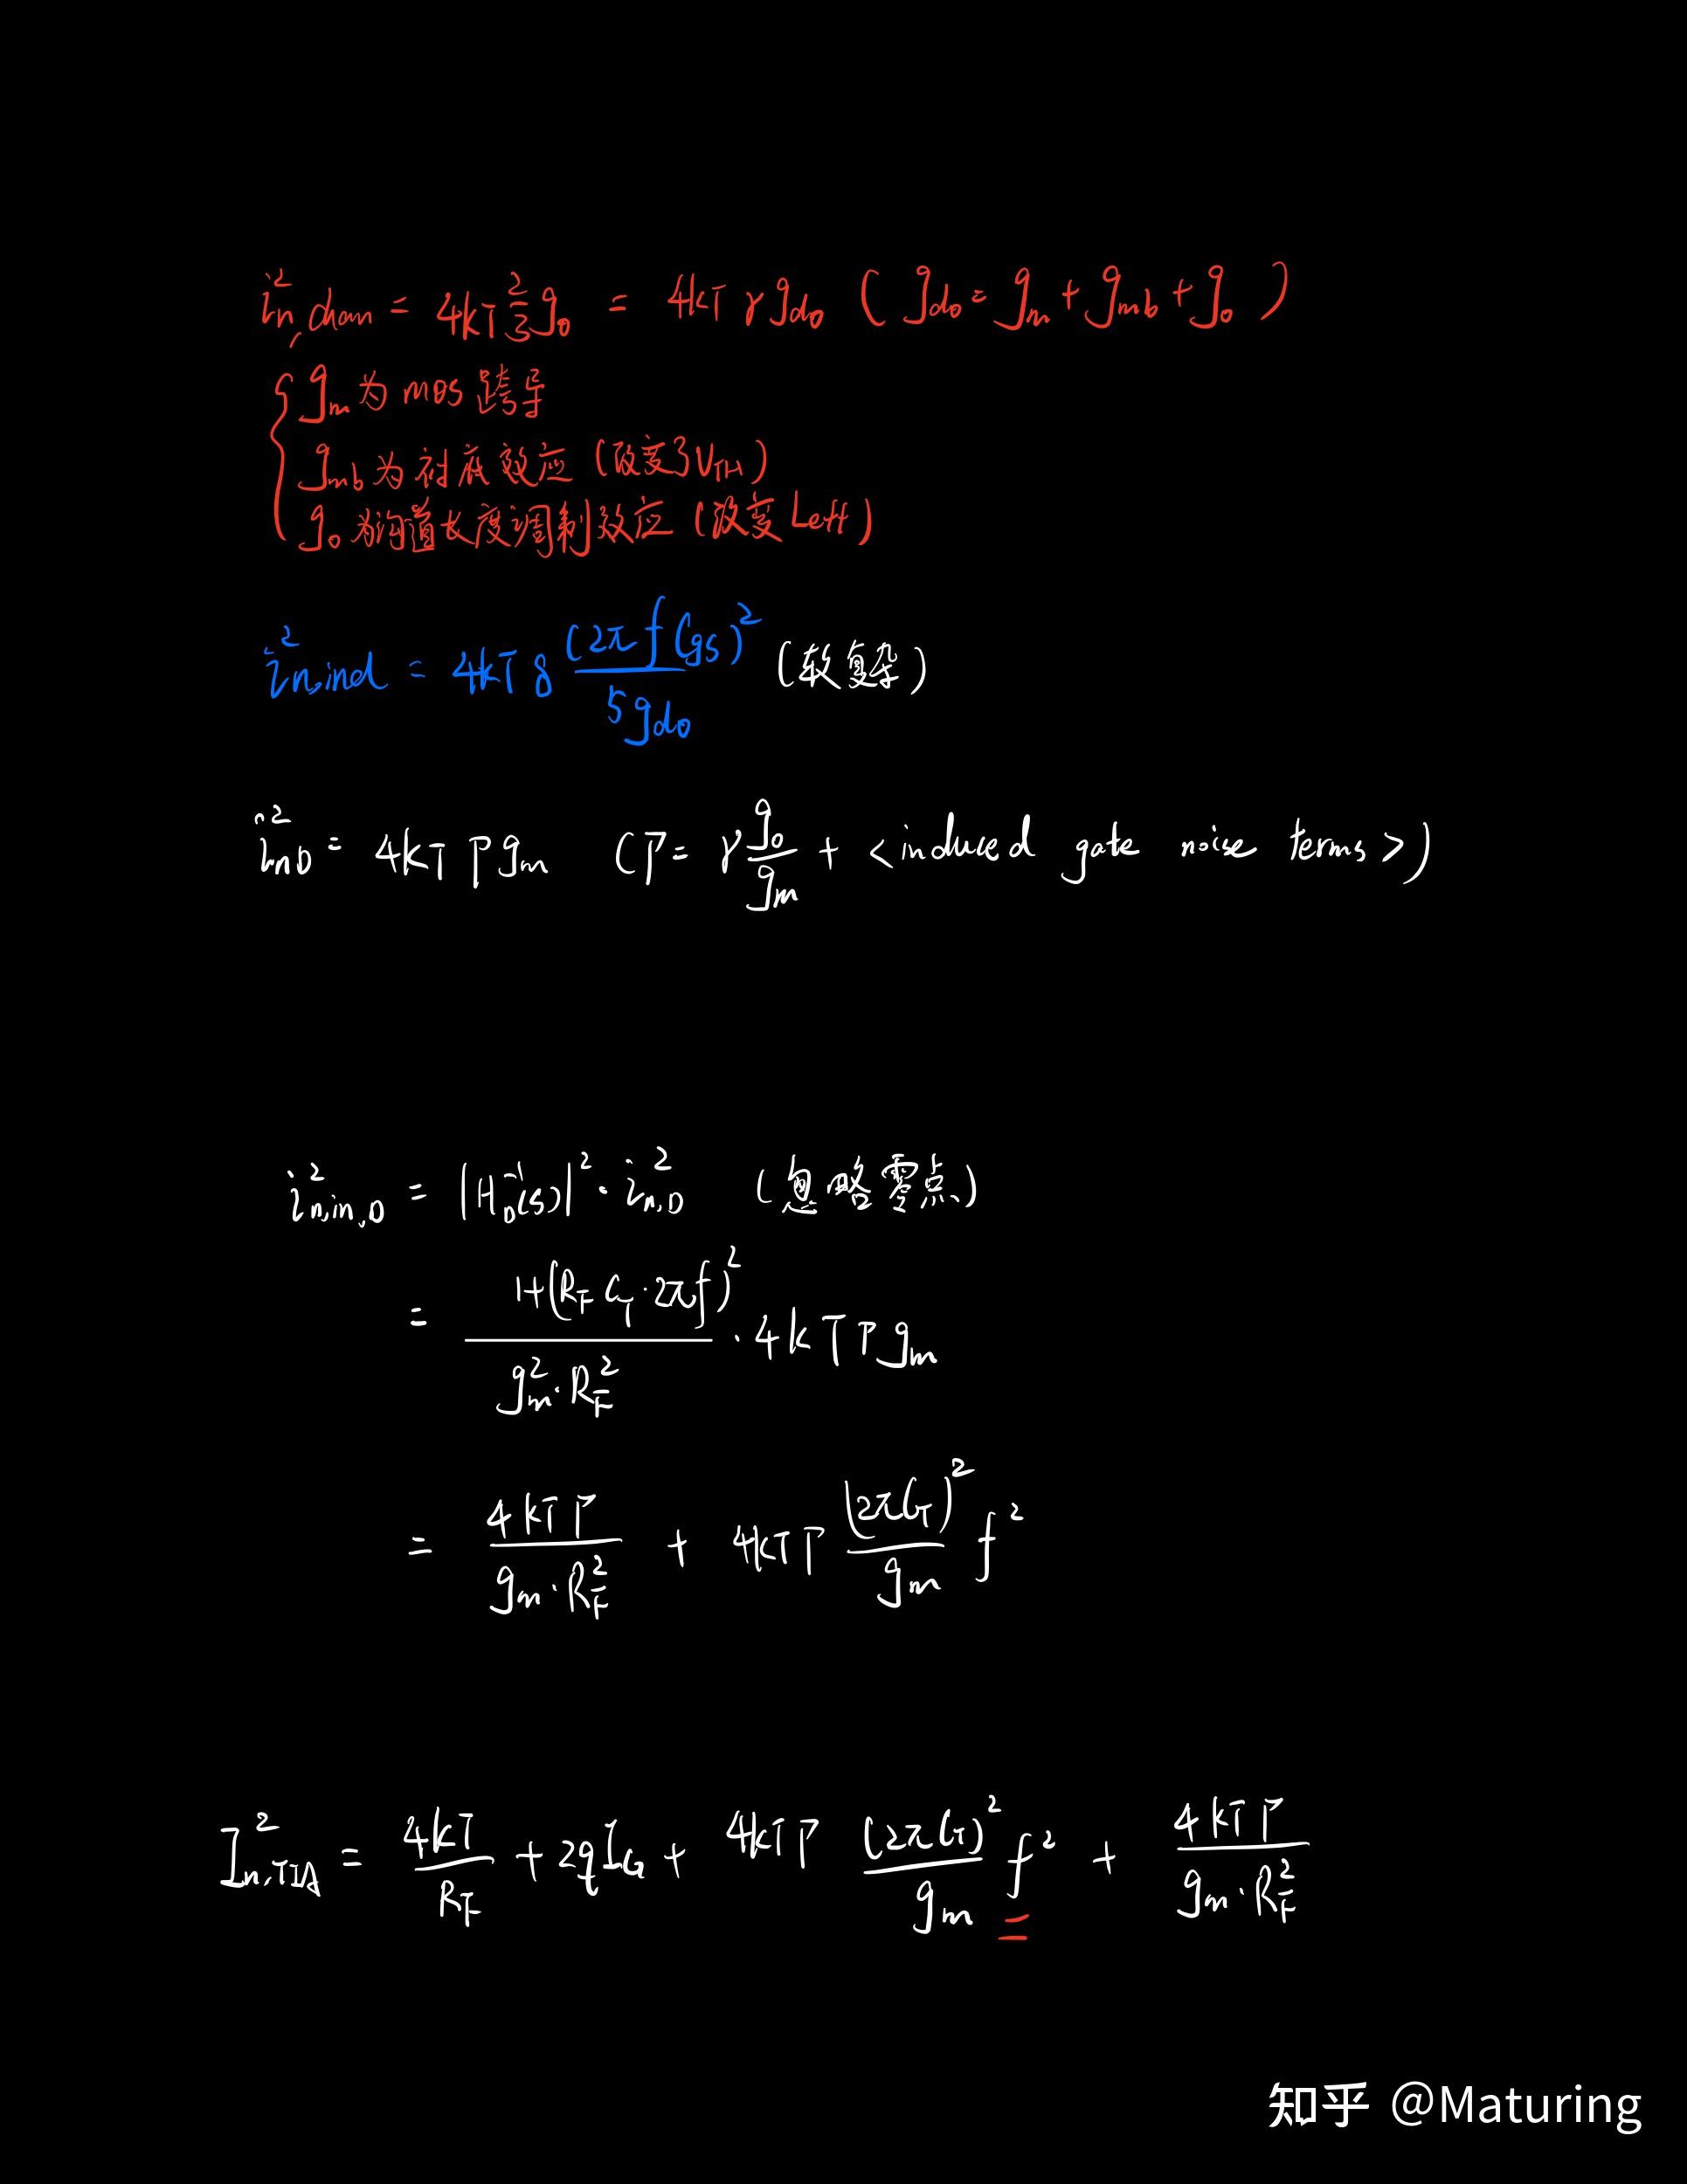 i²n,chan = 4kT 2/3 g₀ = 4kTγg_do (g_do = g_m + g_mb + g_o)
g_m为mos跨导
g_mb为衬底效应(改变了V_TH)
g_o为沟道长度调制效应(改变Leff)
i²n,ind = 4kTδ (2πfCgs)²/5g_do (较复杂)
i²nD = 4kTΓg_m (Γ = γ g_o/g_m + <induced gate noise terms>)
i²n,in,D = |H_D⁻¹(s)|² · i²n,D (忽略零点)
= 1+(R_F C_T·2πf)²/g_m²·R_F² · 4kTΓg_m
= 4kTΓ/g_m·R_F² + 4kTΓ (2πC_T)²/g_m f²
I²n,TIA = 4kT/R_F + 2qI_G + 4kTΓ (2πC_T)²/g_m f² + 4kTΓ/g_m·R_F²
知乎 @Maturing